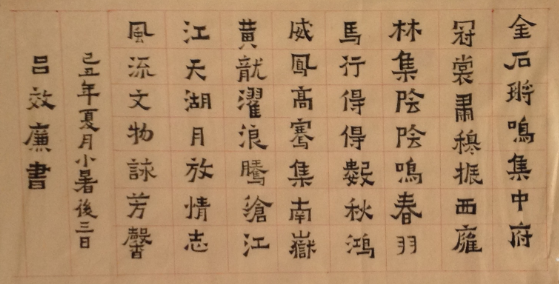 金石鏘鳴集中府
冠裳肅穆振西廱
林集陰陰鳴春羽
馬行得得數秋鴻
威鳳高騫集南嶽
黃龍濯浪騰滄江
江天湖月放情志
風流文物詠芳馨
己丑年夏月小暑後三日
呂效廉書